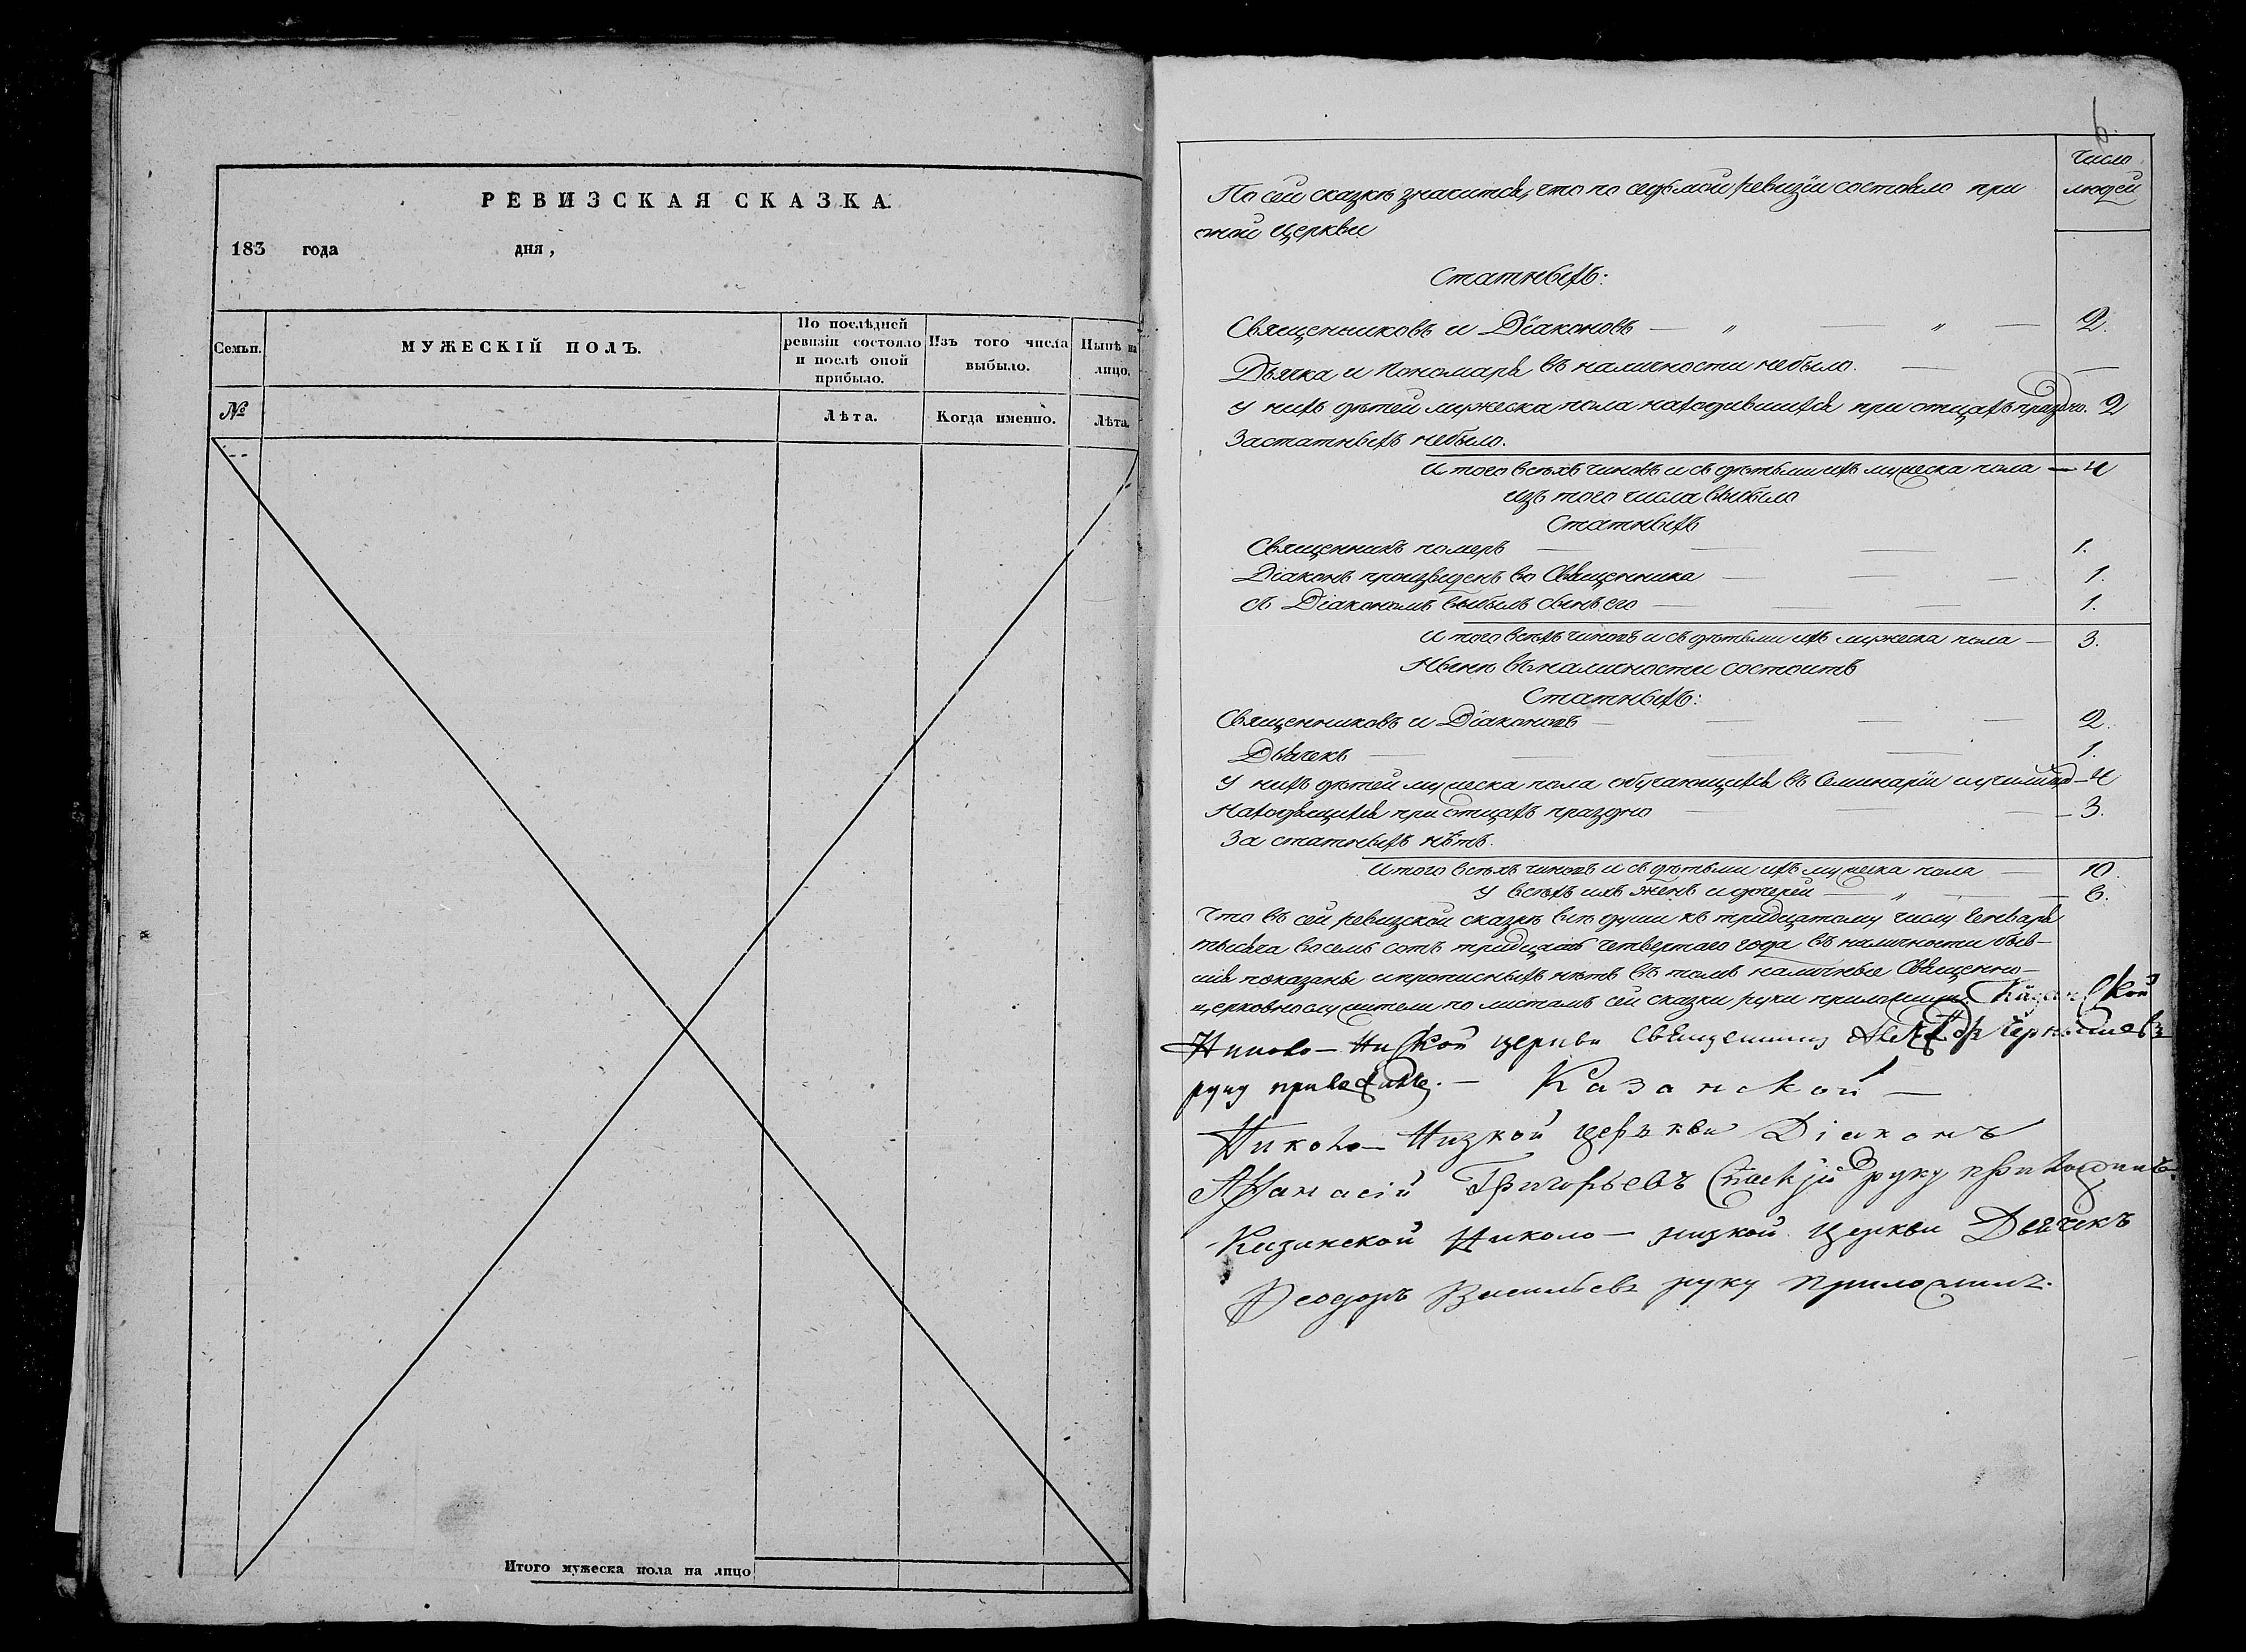 РЕВИЗСКАЯ СКАЗКА.
183 года дня,
Семьи.
МУЖЕСКІЙ ПОЛЪ.
По послѣдней ревизіи состояло и послѣ оной прибыло.
Изъ того числа выбыло.
Нынѣ на лицо.
№
Лѣта.
Когда именно.
Лѣта.
Итого мужеска пола на лицо
6.
Число людей
По сей сказкѣ значится, что по седьмой ревизіи состояло при
этой церкви
Статныхъ:
Священниковъ и Діаконовъ — " — " — 2.
Дьячка и Пономаря въ наличности небыло. — —
У нихъ дѣтей мужеска пола находившихся при отцахъ праздно. 2
Застатныхъ небыло.
Итого всѣхъ чиновъ и съ дѣтьми ихъ мужеска пола — 4
изъ того числа выбыло
Статныхъ
Священникъ померъ — — — 1.
Діаконъ произведенъ во Священника — — — 1.
съ Діакономъ выбылъ сынъ его — — — 1.
Итого всѣхъ чиновъ и съ дѣтьми ихъ мужеска пола — 3.
Нынѣ въ наличности состоитъ
Статныхъ:
Священниковъ и Діаконовъ — — — 2.
Дьячекъ — — — 1.
У нихъ дѣтей мужеска пола обучающихся въ Семинаріи и училищѣ — 4
Находящихся при отцахъ праздно — — — 3.
За статныхъ нѣтъ.
Итого всѣхъ чиновъ и съ дѣтьми ихъ мужеска пола — 10.
У всѣхъ ихъ женъ и дочерей — " — 6.
Что въ сей ревизской сказкѣ всѣ души къ тридцатому числу Генваря
тысяча восемь сотъ тридцать четвертаго года въ наличности быв-
шія показаны и прописныхъ нѣтъ въ томъ наличные Священно-
церковнослужители по листамъ сей сказки руки приложили. Казанской
Николо-Ниской церкви Священникъ
руку приложилъ. — Казанской —
Николо-Низкой церкви Діаконъ
Аѳанасій Григорьевъ Спаскій руку приложилъ.
Казанской Николо-низкой Церкви Дьячекъ
Ѳеодоръ Васильевъ руку приложилъ.